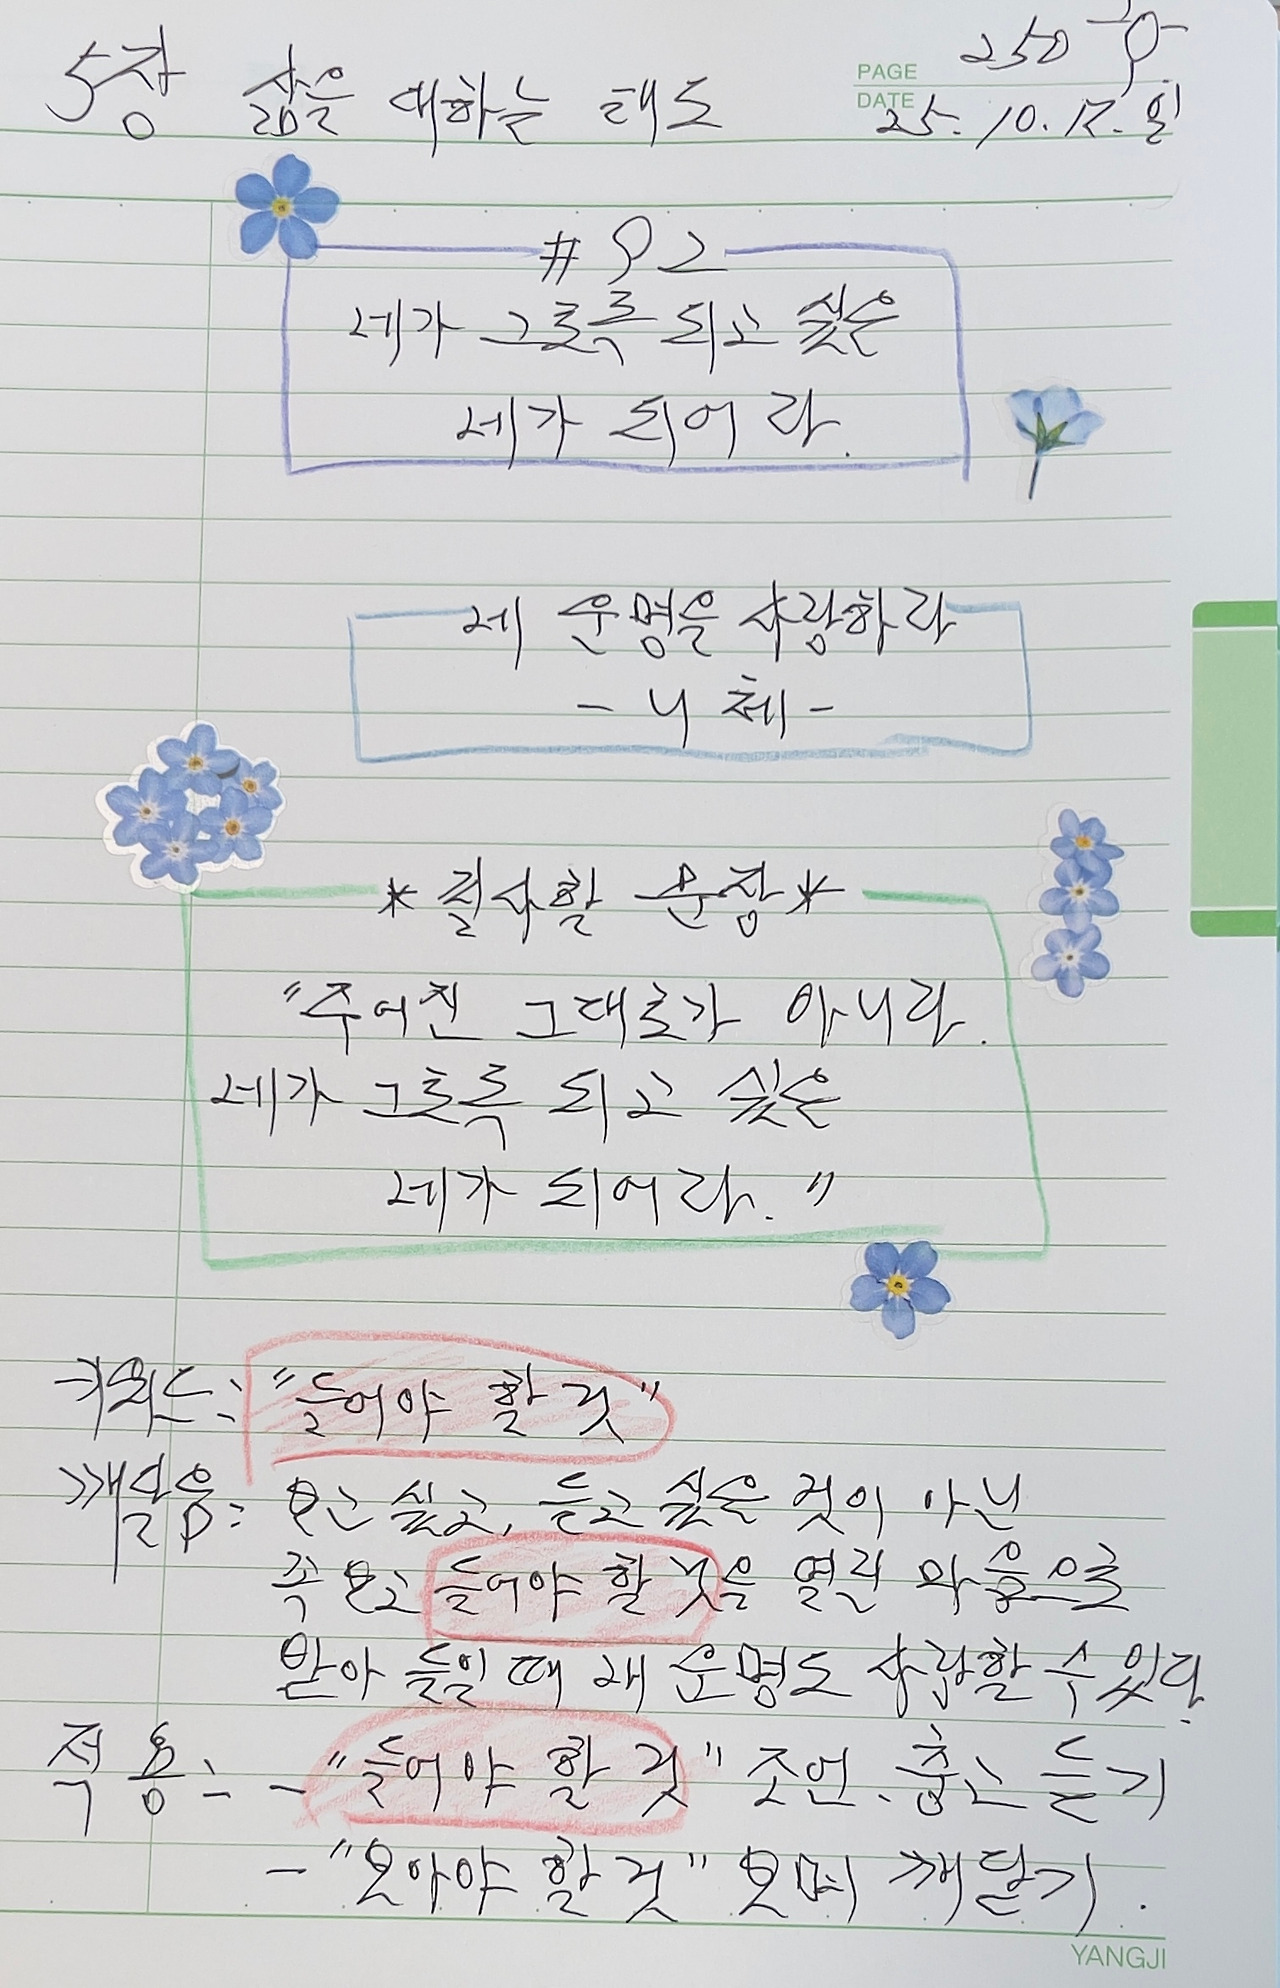 5장 삶을 대하는 태도
PAGE 250
DATE 25. 10. 12. 일
#92
네가 그토록 되고 싶은
네가 되어라.
네 운명을 사랑하라
- 니체 -
*필사할 문장*
"주어진 그대로가 아니라.
네가 그토록 되고 싶은
네가 되어라."
키워드: "들어야 할 것"
깨달음: 보고 싶고, 듣고 싶은 것이 아닌
꼭 보고 들어야 할 것을 열린 마음으로
받아 들일 때 내 운명도 사랑할 수 있다.
적용: - "들어야 할 것" 조언. 충고 듣기
- "보아야 할 것" 보며 깨닫기.
YANGJI